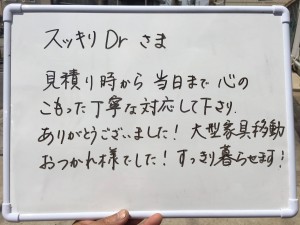 スッキリDr さま
見積り時から 当日まで 心の
こもった丁寧な対応して下さり、
ありがとうございました！ 大型家具移動
おつかれ様でした！ すっきり暮らせます！